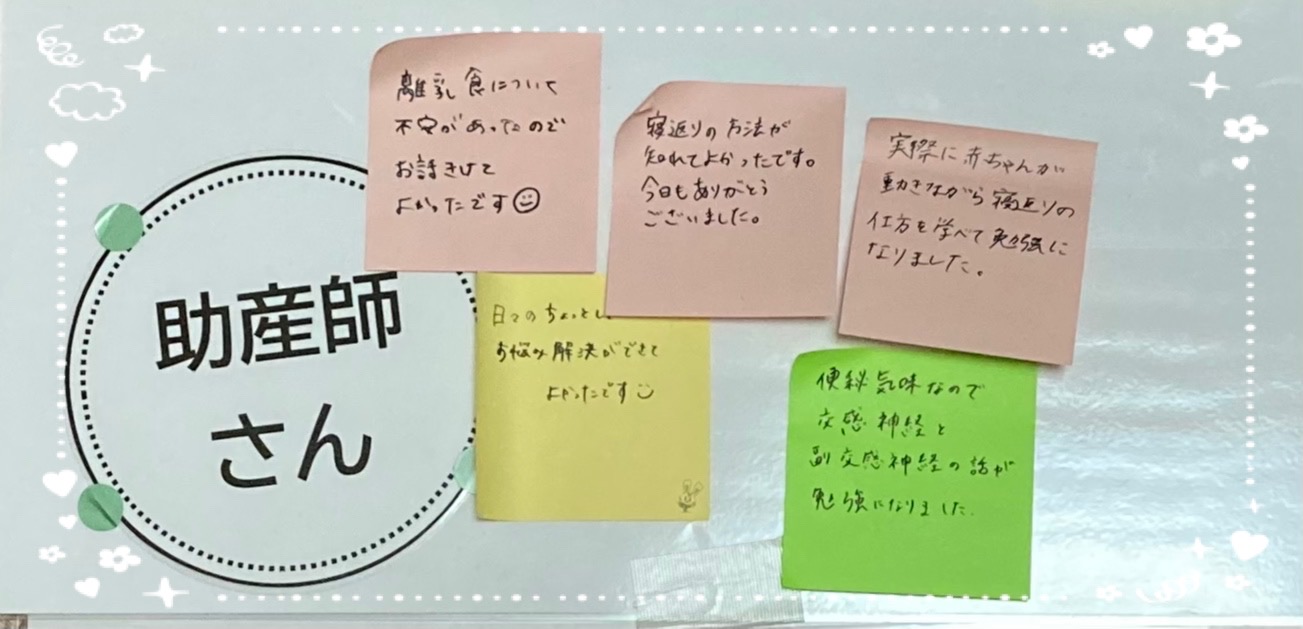 助産師
さん
離乳食について
不安があったので
お話きけて
よかったです
寝返りの方法が
知れてよかったです。
今日もありがとう
ございました。
実際に赤ちゃんが
動きながら寝返りの
仕方を学べて勉強に
なりました。
日々のちょっとし
お悩み解決ができて
よかったです
便秘気味なので
交感神経と
副交感神経の話が
勉強になりました.